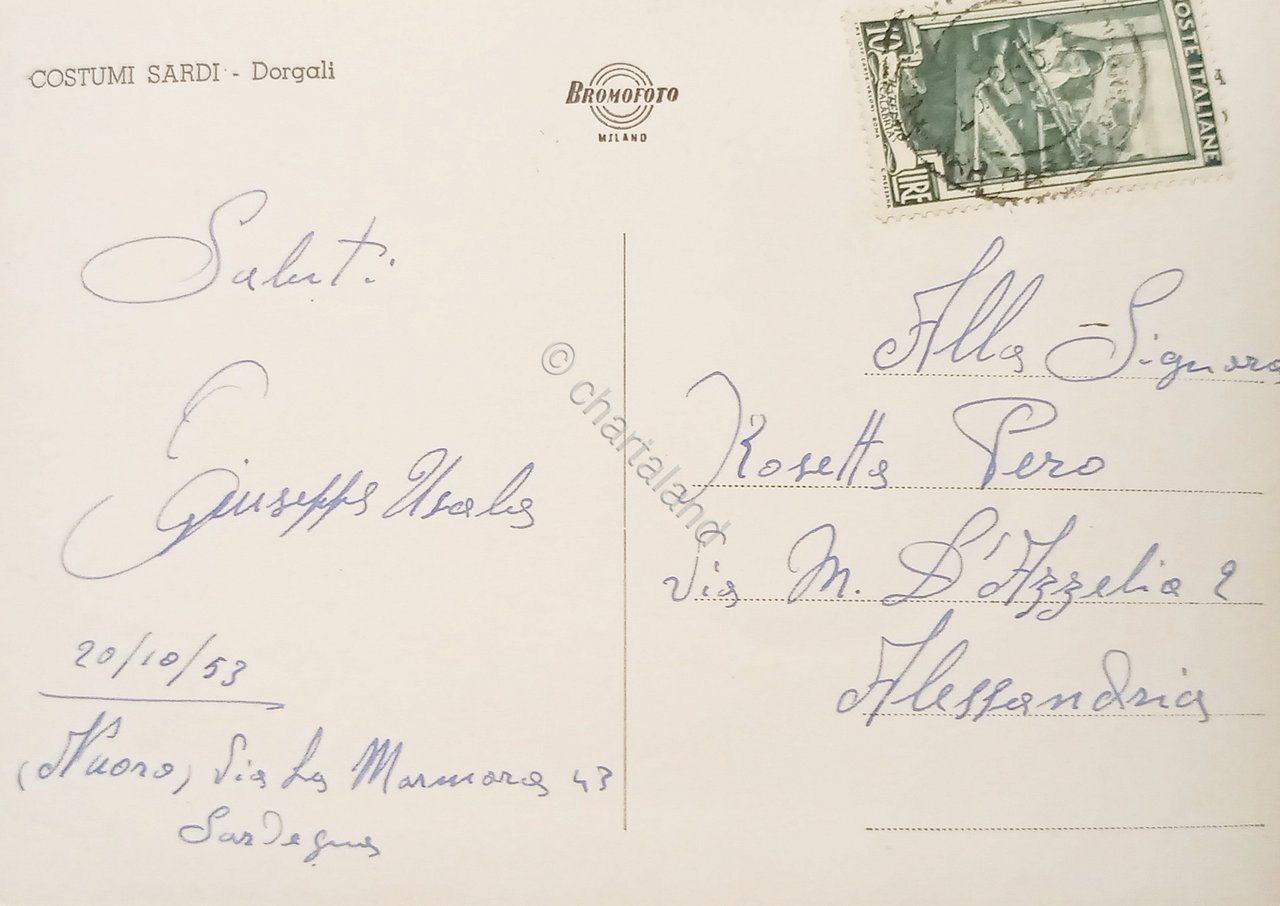 COSTUMI SARDI - Dorgali
BROMOFOTO
MILANO
10
LIRE
POSTE ITALIANE
CALABRIA
Saluti
Giuseppe Usala
20/10/53
(Nuoro) Via La Marmora 43
Sardegna
Alla Signora
Rosetta Pero
Via M. D'Azzelia 2
Alessandria
© chartaland